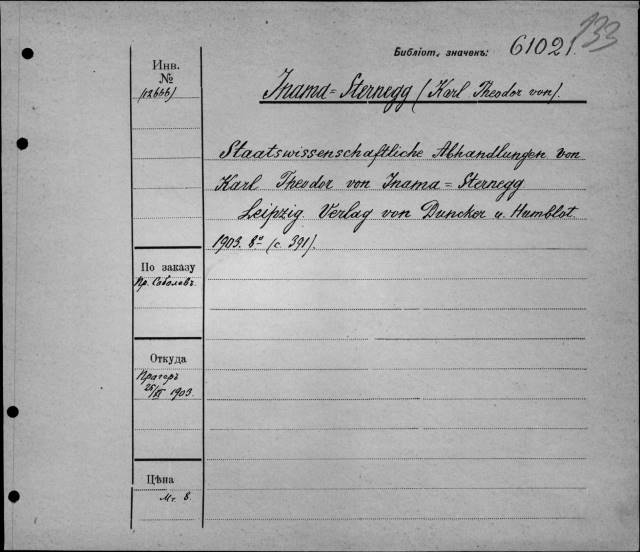 133
Библіот. значекъ: 61021.
Инв.
№
(12666)
Inama=Sternegg (Karl Theodor von).
Staatswissenschaftliche Abhandlungen von
Karl Theodor von Inama=Sternegg
Leipzig. Verlag von Duncker u. Humblot.
1903. 8º (с. 391).
По заказу
Пр. Соболевъ.
Откуда
Прагеръ
25/XI 1903.
Цѣна
Мк. 8.